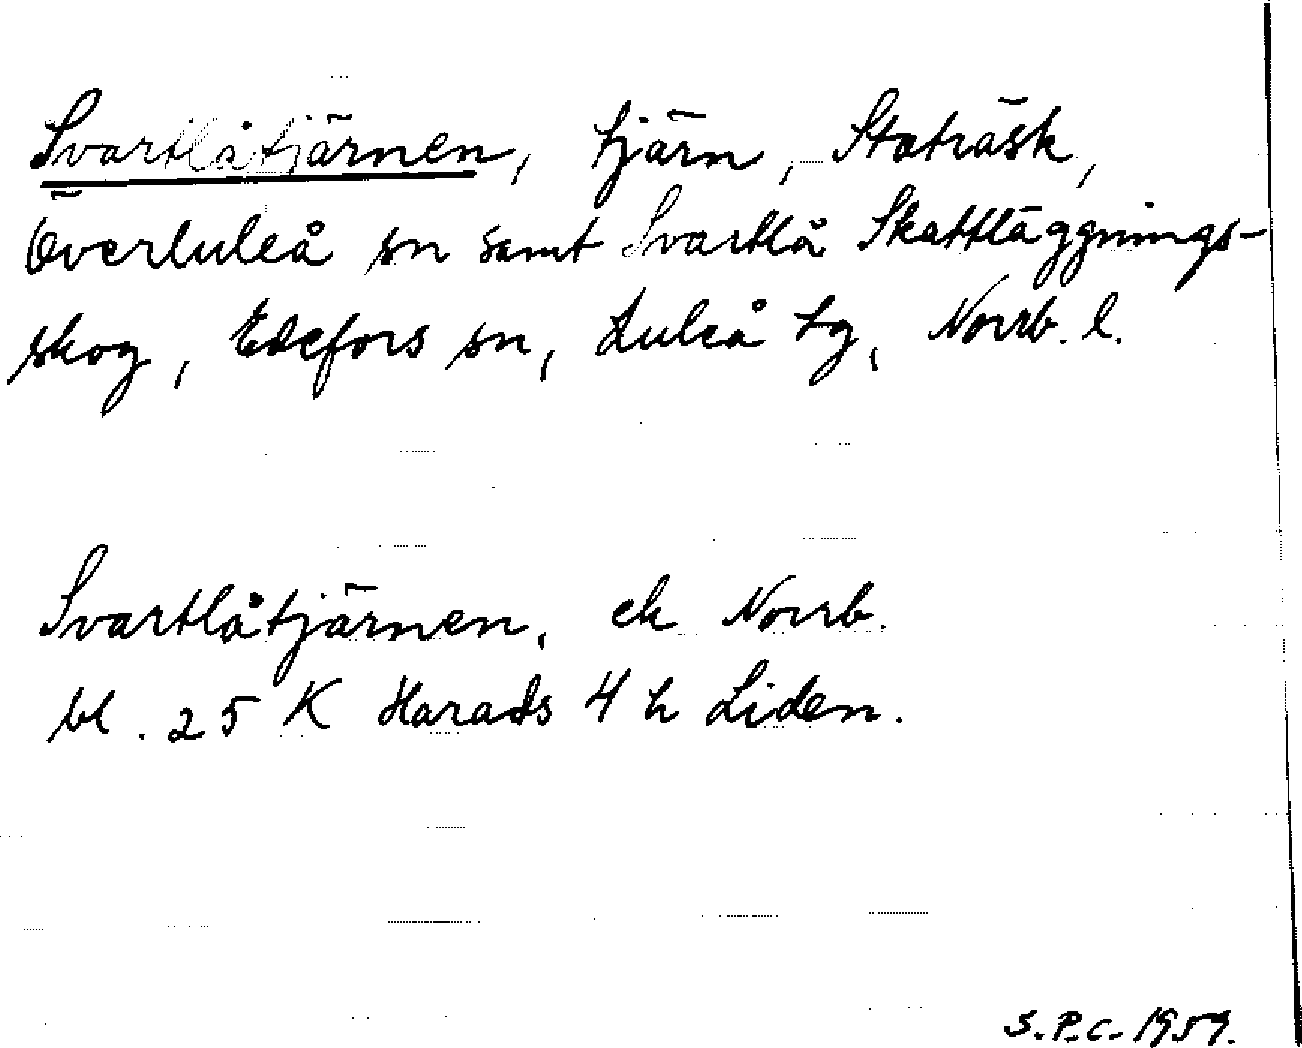 Svartlåtjärnen, tjärn, Stoträsk,
Överluleå sn samt Svartlå Skattläggnings-
skog, Edefors sn, Luleå tg, Norrb. l.
Svartlåtjärnen, ek Norrb.
bl. 25 K Harads 4 h Liden.
S.P.C. 1959.